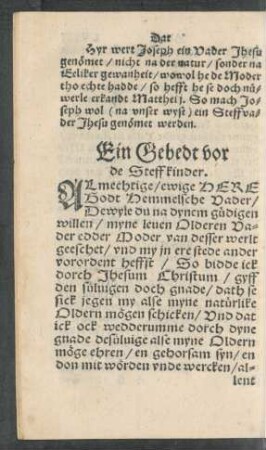 Dat
Hyr wert Joseph ein Vader Jhesu
genömet / nicht na der natur / sonder na
Eeliker gewanheit / wowol he de Moder
tho echte hadde / so hefft he se doch nü-
werle erkandt Matthei j. So mach Jo-
seph wol (na vnser wyse) ein Steffva-
der Jhesu genömet werden.
Ein Gebedt vor
de Steffkinder.
ALmechtige / ewige HERE
Godt Hemmelsche Vader /
Dewyle du na dynem güdigen
willen / myne leuen Olderen Va-
der edder Moder van desser werlt
geeschet / vnd my in ere stede ander
vorordent heffst / So bidde ick
dorch Jhesum Christum / gyff
den süluigen doch gnade / dath se
sick jegen my alse myne natürlike
Oldern mögen schicken / Vnd dat
ick ock wedderumme dorch dyne
gnade desüluige alse myne Oldern
möge ehren / en gehorsam syn / en
don mit wörden vnde wercken / al-
lent